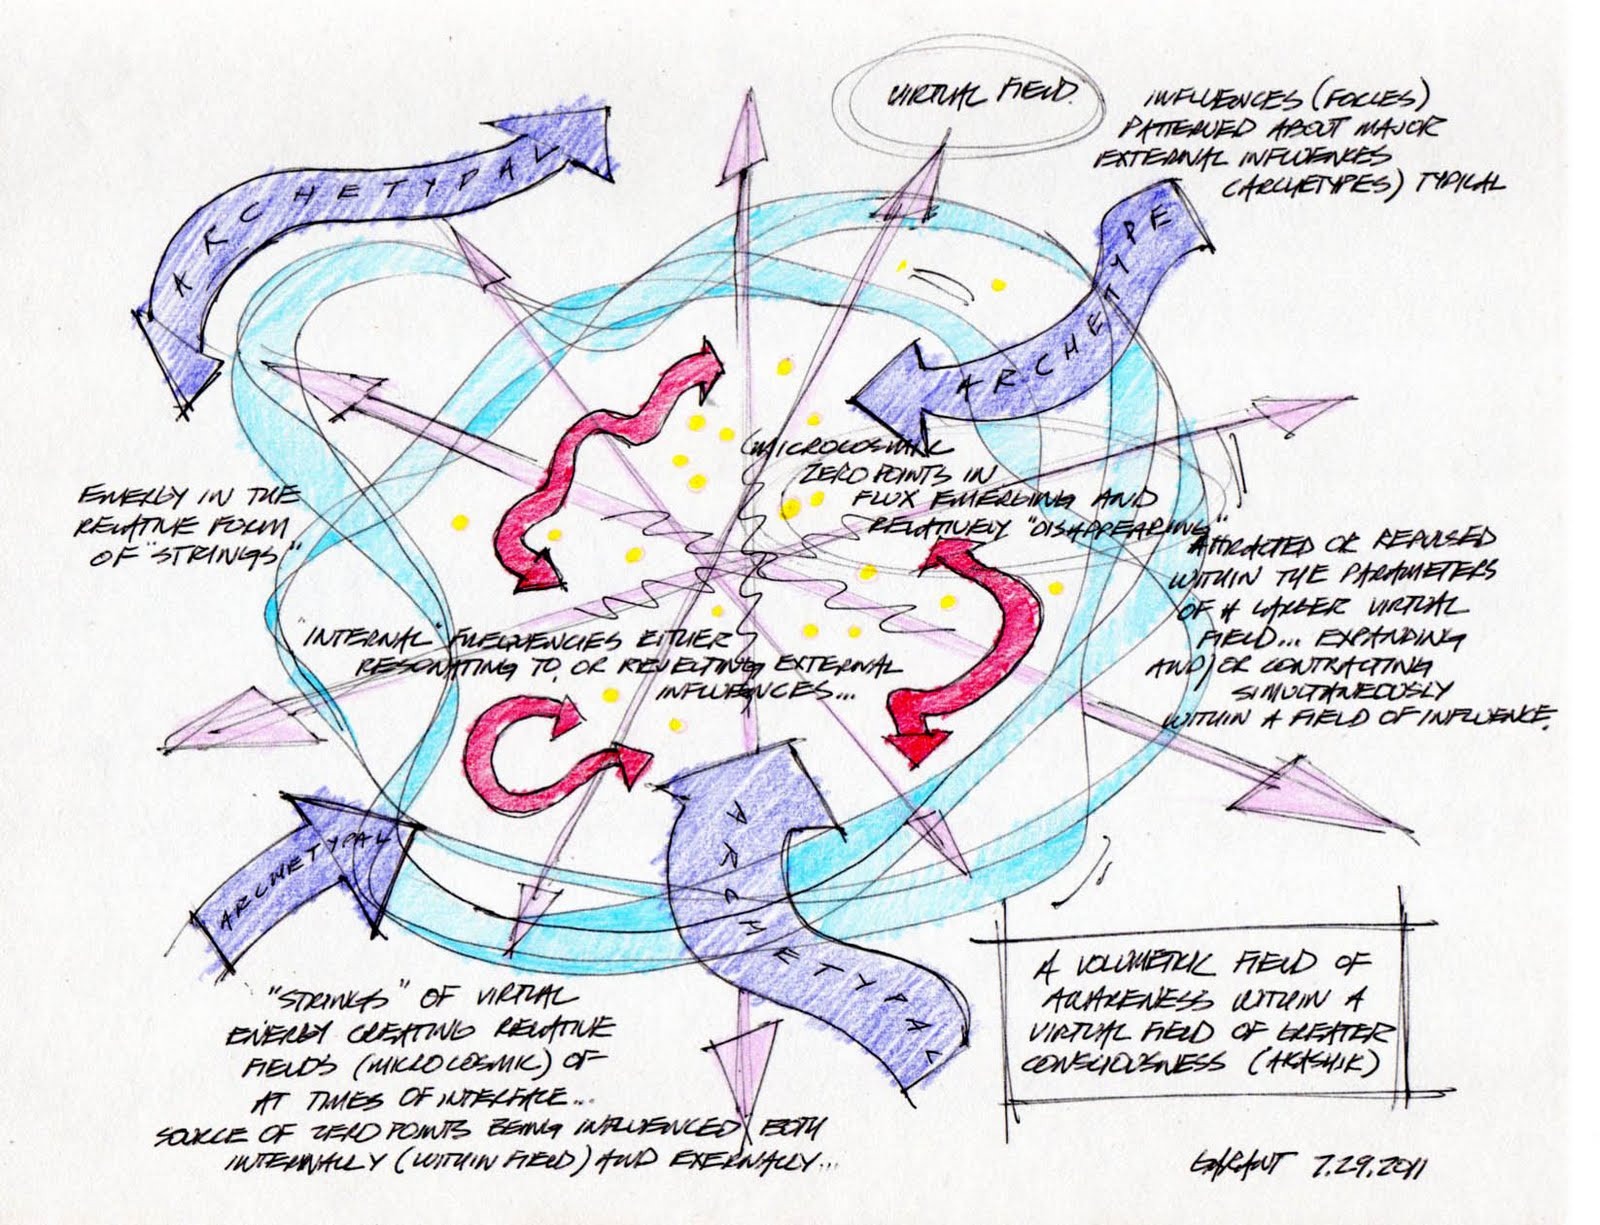 VIRTUAL FIELD.
INFLUENCES (FORCES)
PATTERNED ABOUT MAJOR
EXTERNAL INFLUENCES
(ARCHETYPES) TYPICAL
ARCHETYPAL
ARCHETYPE
(MICROCOSMIC
ZERO POINTS IN
FLUX EMERGING AND
RELATIVELY "DISAPPEARING"
ENERGY IN THE
RELATIVE FORM
OF "STRINGS"
ATTRACTED OR REPULSED
WITHIN THE PARAMETERS
OF A LARGER VIRTUAL
FIELD... EXPANDING
AND/OR CONTRACTING
SIMULTANEOUSLY
WITHIN A FIELD OF INFLUENCE.
"INTERNAL" FREQUENCIES EITHER
RESONATING TO, OR REJECTING EXTERNAL
INFLUENCES...
ARCHETYPAL
ARCHETYPAL
"STRINGS" OF VIRTUAL
ENERGY CREATING RELATIVE
FIELDS (MICROCOSMIC) OF
AT TIMES OF INTERFACE...
SOURCE OF ZERO POINTS BEING INFLUENCED BOTH
INTERNALLY (WITHIN FIELD) AND EXERNALLY...
A VOLUMETRIC FIELD OF
AWARENESS WITHIN A
VIRTUAL FIELD OF GREATER
CONSCIOUSNESS (AKASHIK)
GARANT 7.29.2011